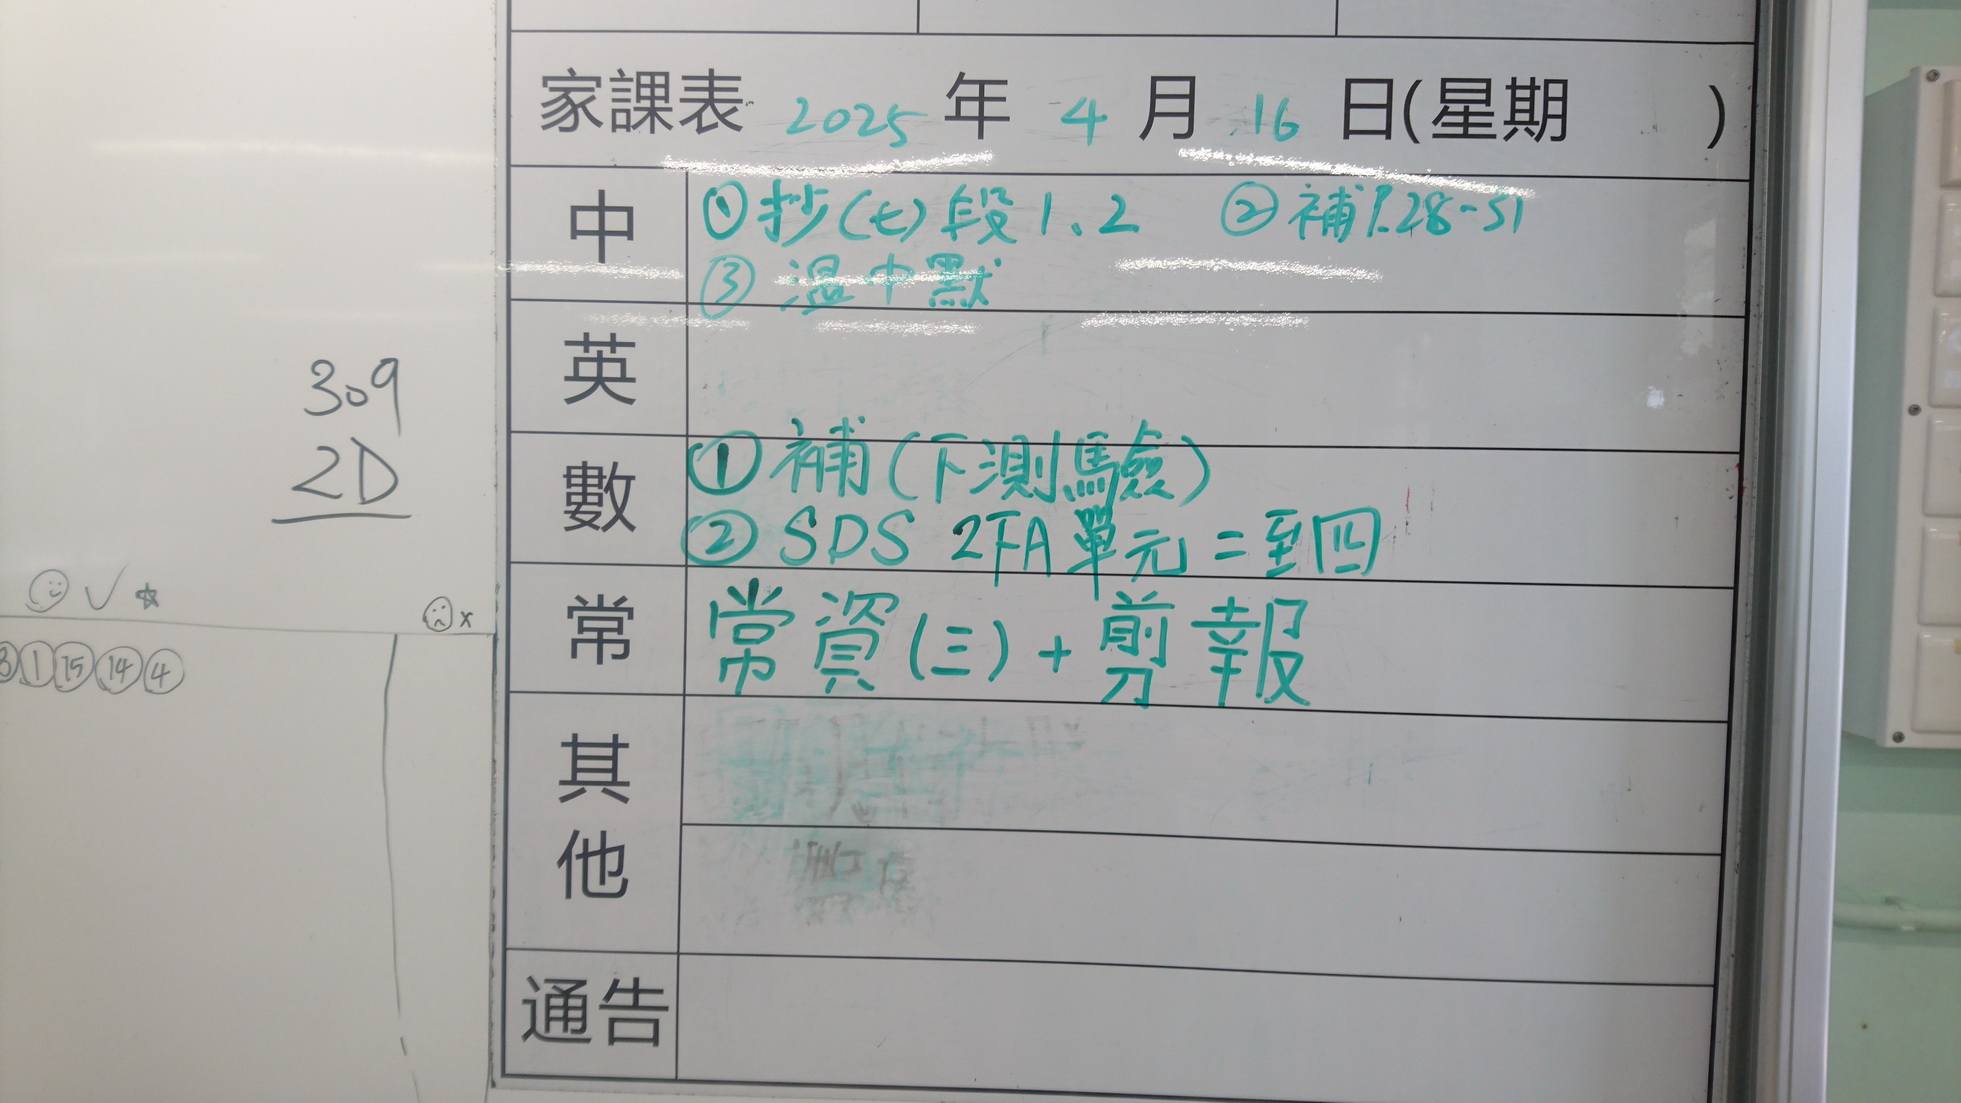 家課表 2025 年 4 月 16 日(星期 )
中 ① 抄(七)段1、2 ② 補P.28-31
③ 溫中默
英
數 ① 補(下測驗)
② SDS 2下A單元二至四
常 常資(三)+剪報
其他
通告
309
2D
☺ ✓ ☆
☹ x
3 1 15 14 4